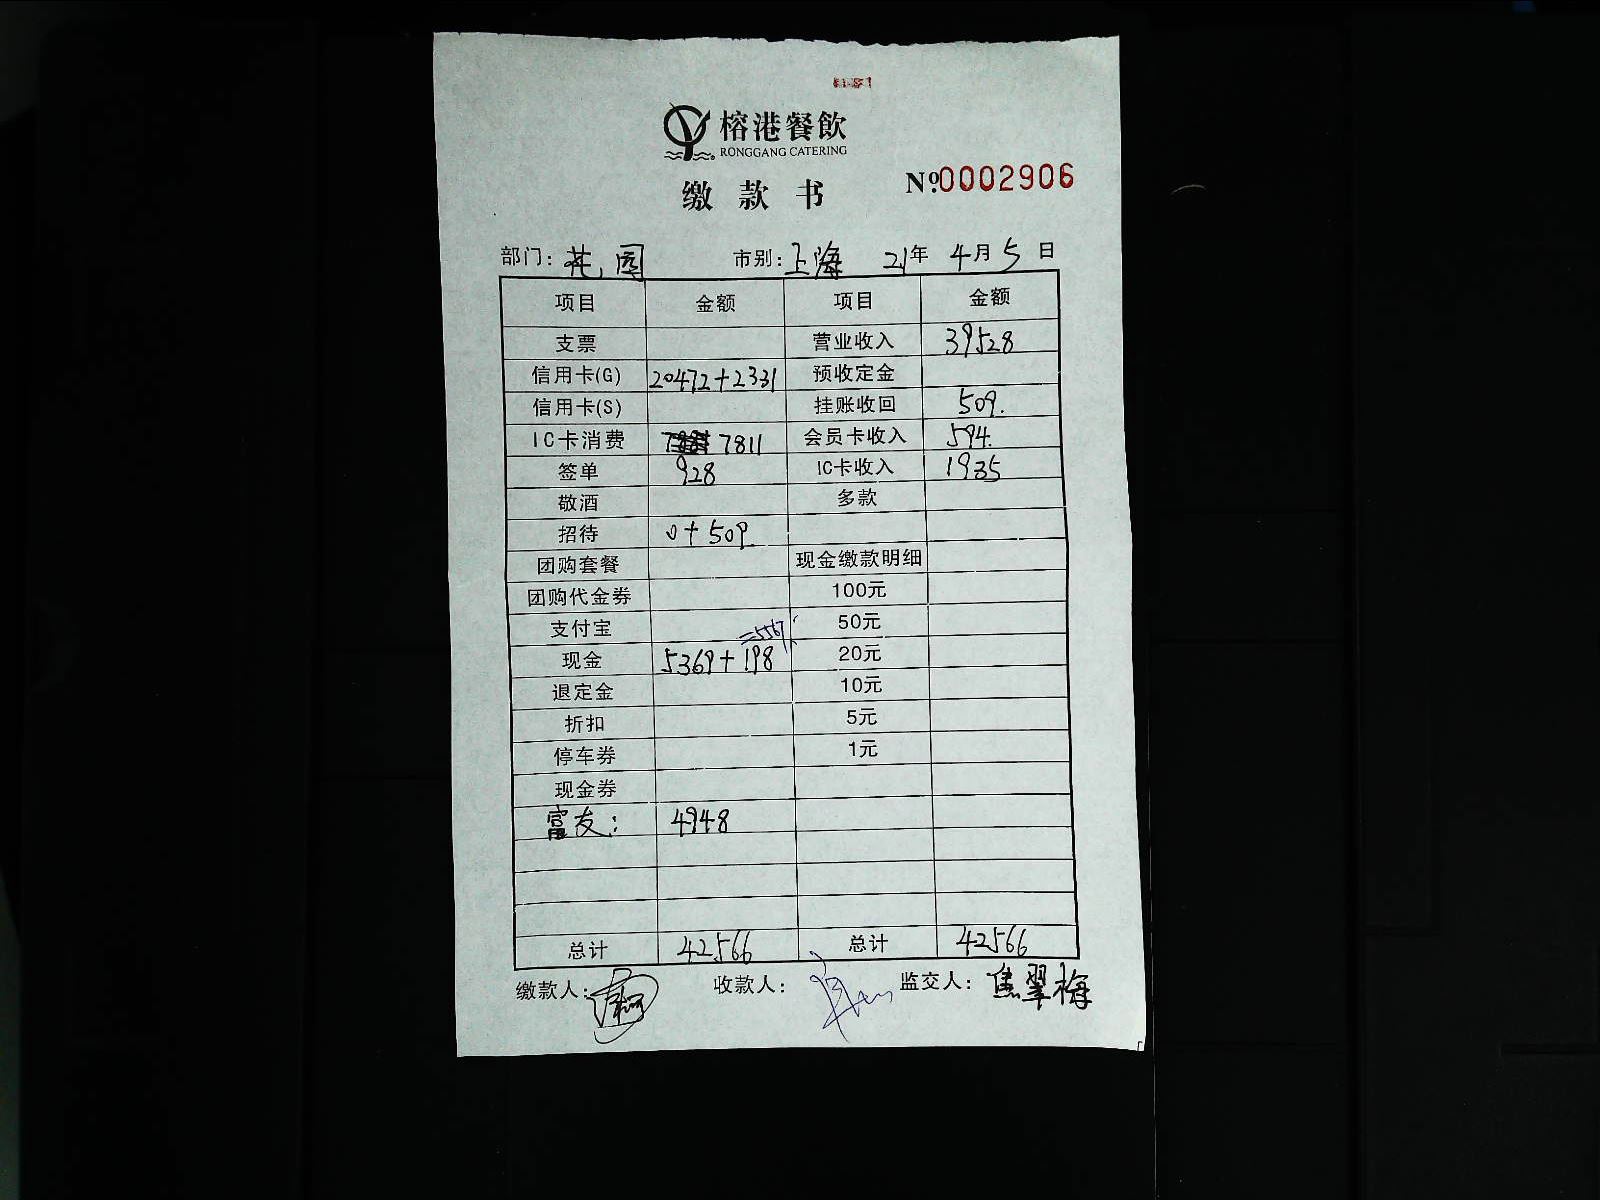 榕港餐飲
RONGGANG CATERING
缴款书 №0002906
部门: 花园 市别: 上海 21年 4月 5日
项目 金额 项目 金额
支票 营业收入 39528
信用卡(G) 20472+2331 预收定金
信用卡(S) 挂账收回 509.
IC卡消费 7811 会员卡收入 594.
签单 928 IC卡收入 1935
敬酒 多款
招待 0+509.
团购套餐 现金缴款明细
团购代金券 100元
支付宝 50元
=5567
现金 5369+198 20元
退定金 10元
折扣 5元
停车券 1元
现金券
富友: 4948
总计 42566 总计 42566
缴款人: 收款人: 监交人: 焦翠梅